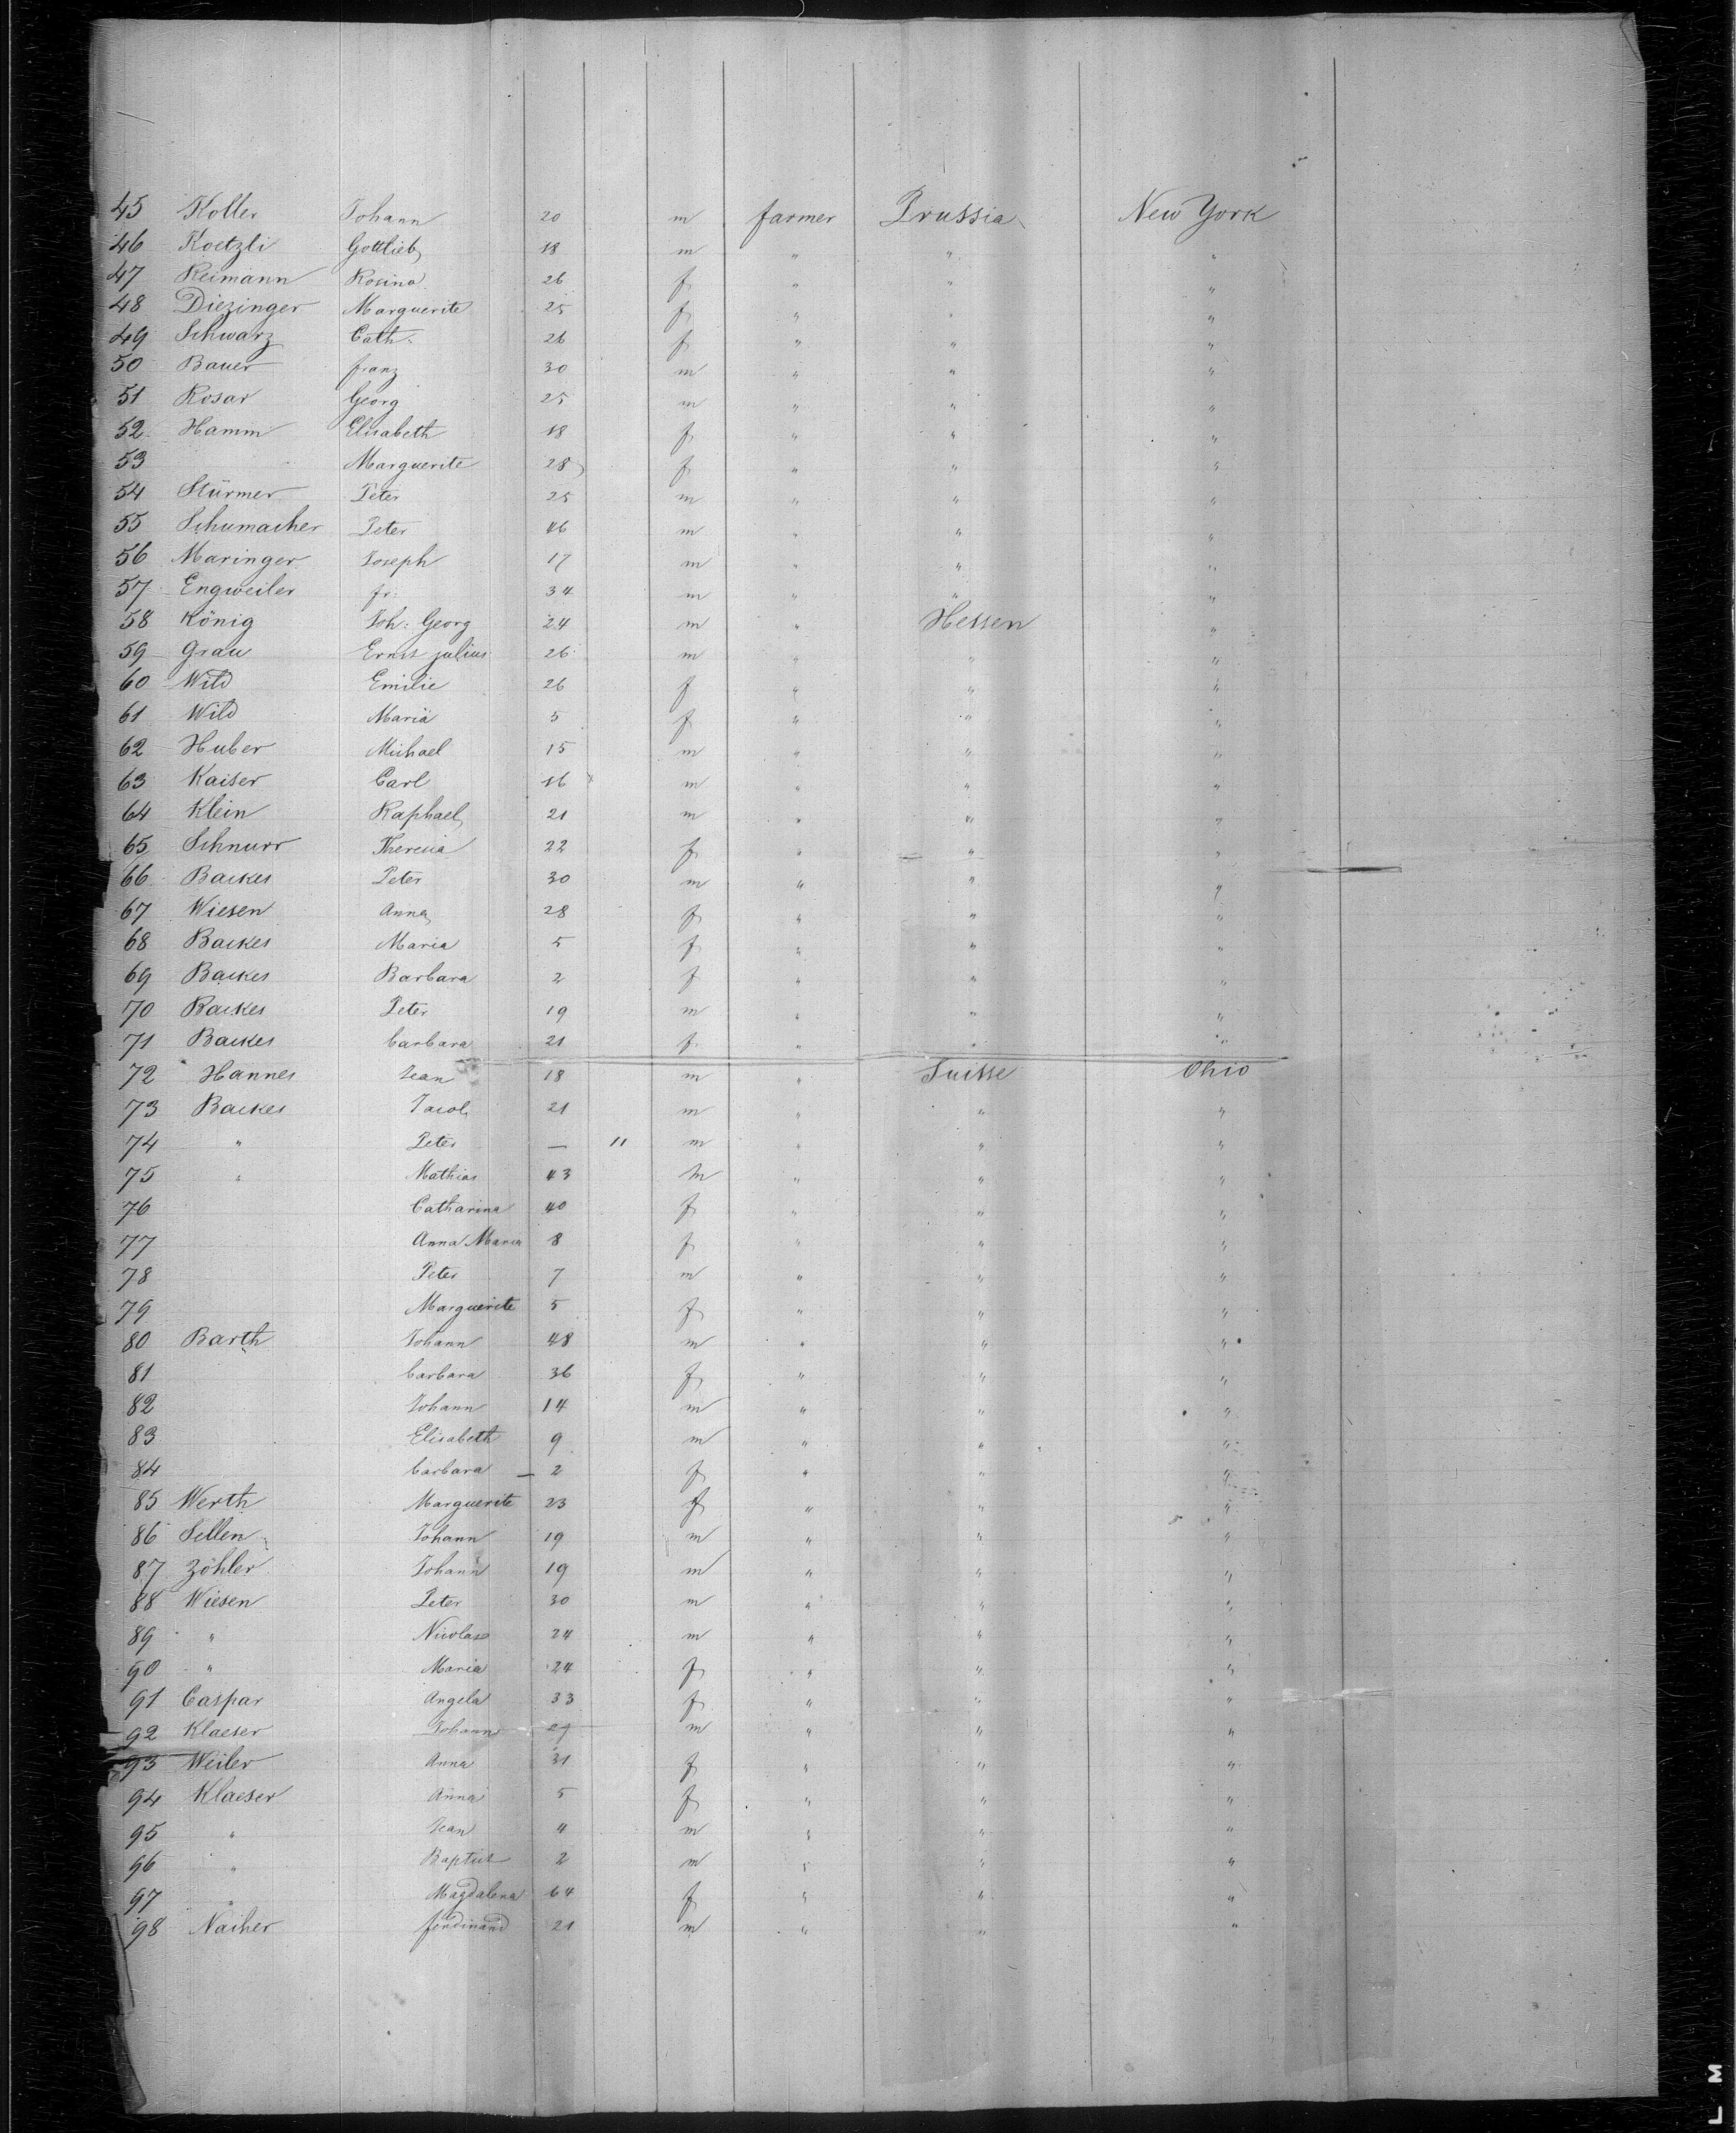 45 Koller Johann 20 m farmer Prussia New York
46 Koetzli Gottlieb 18 m " " "
47 Reimann Rosina 26 f " " "
48 Diezinger Marguerite 25 f " " "
49 Schwarz Cath. 26 f " " "
50 Bauer franz 30 m " " "
51 Rosar Georg 25 m " " "
52 Hamm Elisabeth 18 f " " "
53 Marguerite 28 f " " "
54 Stürmer Peter 25 m " " "
55 Schumacher Peter 46 m " " "
56 Maringer Joseph 17 m " " "
57 Engweiler fr: 34 m " " "
58 König Joh: Georg 24 m " Hessen "
59 Grau Ernst julius 26 m " " "
60 Wild Emilie 26 f " " "
61 Wild Maria 5 f " " "
62 Huber Michael 15 m " " "
63 Kaiser Carl 16 m " " "
64 Klein Raphael 21 m " " "
65 Schnurr Theresia 22 f " " "
66 Backes Peter 30 m " " "
67 Wiesen Anna 28 f " " "
68 Backes Maria 5 f " " "
69 Backes Barbara 2 f " " "
70 Backes Peter 19 m " " "
71 Backes barbara 21 f " " "
72 Hannes Jean 18 m " Suisse Ohio
73 Backes Jacob 21 m " " "
74 " Peter — 11 m " " "
75 " Mathias 43 m " " "
76 Catharina 40 f " " "
77 Anna Maria 8 f " " "
78 Peter 7 m " " "
79 Marguerite 5 f " " "
80 Barth Johann 48 m " " "
81 barbara 36 f " " "
82 Johann 14 m " " "
83 Elisabeth 9 m " " "
84 barbara — 2 f " " "
85 Werth Marguerite 23 f " " "
86 Sellen Johann 19 m " " "
87 Zöhler Johann 19 m " " "
88 Wiesen Peter 30 m " " "
89 " Nicolas 24 m " " "
90 " Maria 24 f " " "
91 Caspar Angela 33 f " " "
92 Klaeser Johann 27 m " " "
93 Weiler Anna 31 f " " "
94 Klaeser Anna 5 f " " "
95 " Jean 4 m " " "
96 " Baptist 2 m " " "
97 " Magdalena 64 f " " "
98 Naiher ferdinand 21 m " " "
L M